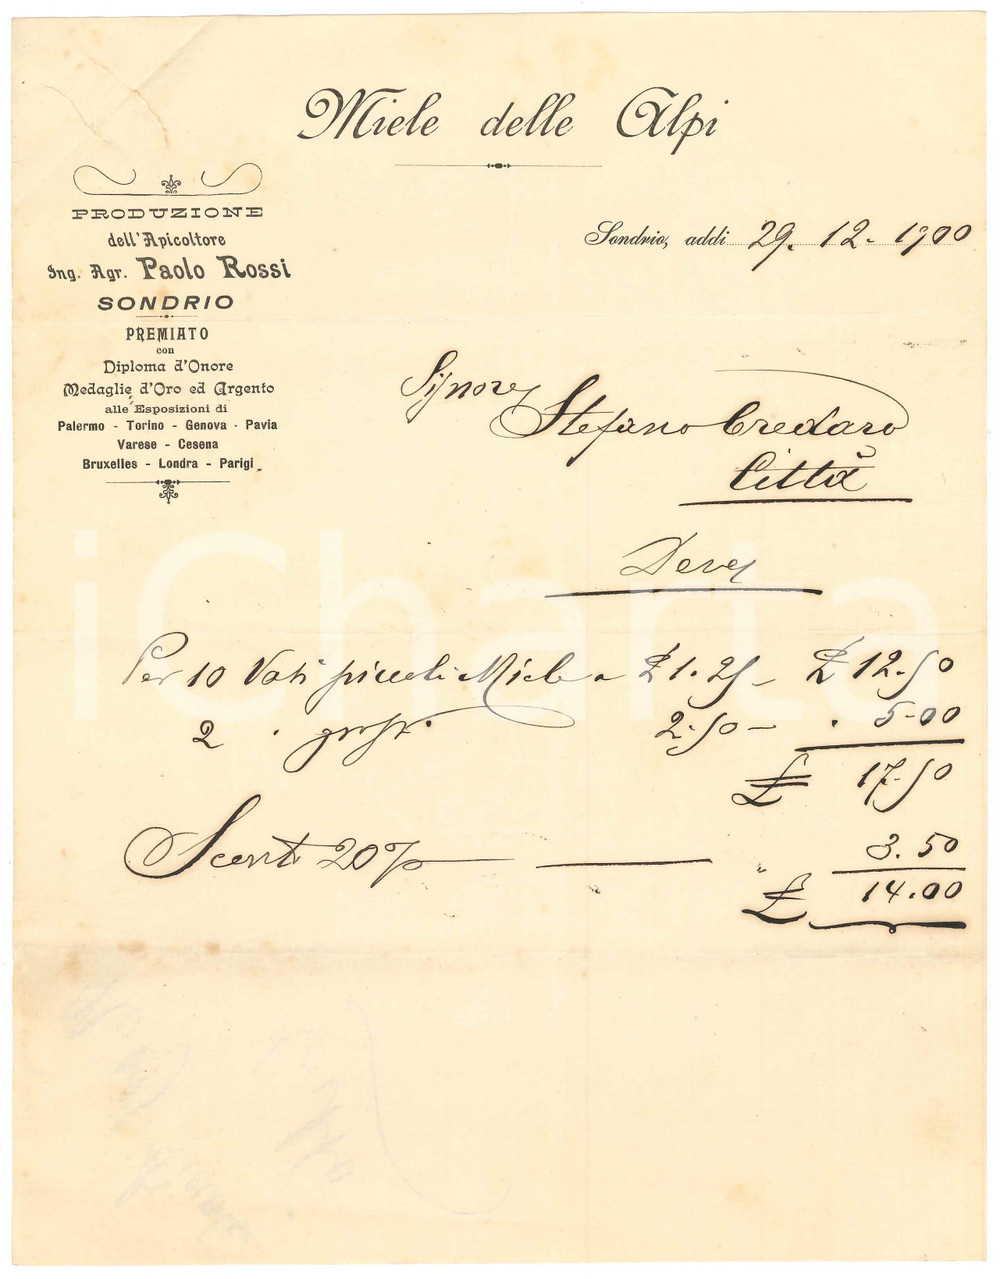 Miele delle Alpi
PRODUZIONE
dell'Apicoltore
Ing. Agr. Paolo Rossi
SONDRIO
PREMIATO
con
Diploma d'Onore
Medaglie d'Oro ed Argento
alle Esposizioni di
Palermo - Torino - Genova - Pavia
Varese - Cesena
Bruxelles - Londra - Parigi
Sondrio, addi 29. 12. 1900
Signore
Stefano Credaro
Città
Deve
iCharta
Per 10 Vasi piccoli Miele a £ 1.25 - £ 12.50
2 " grossi 2.50 - " 5.00
£ 17.50
Sconto 20% 3.50
£ 14.00